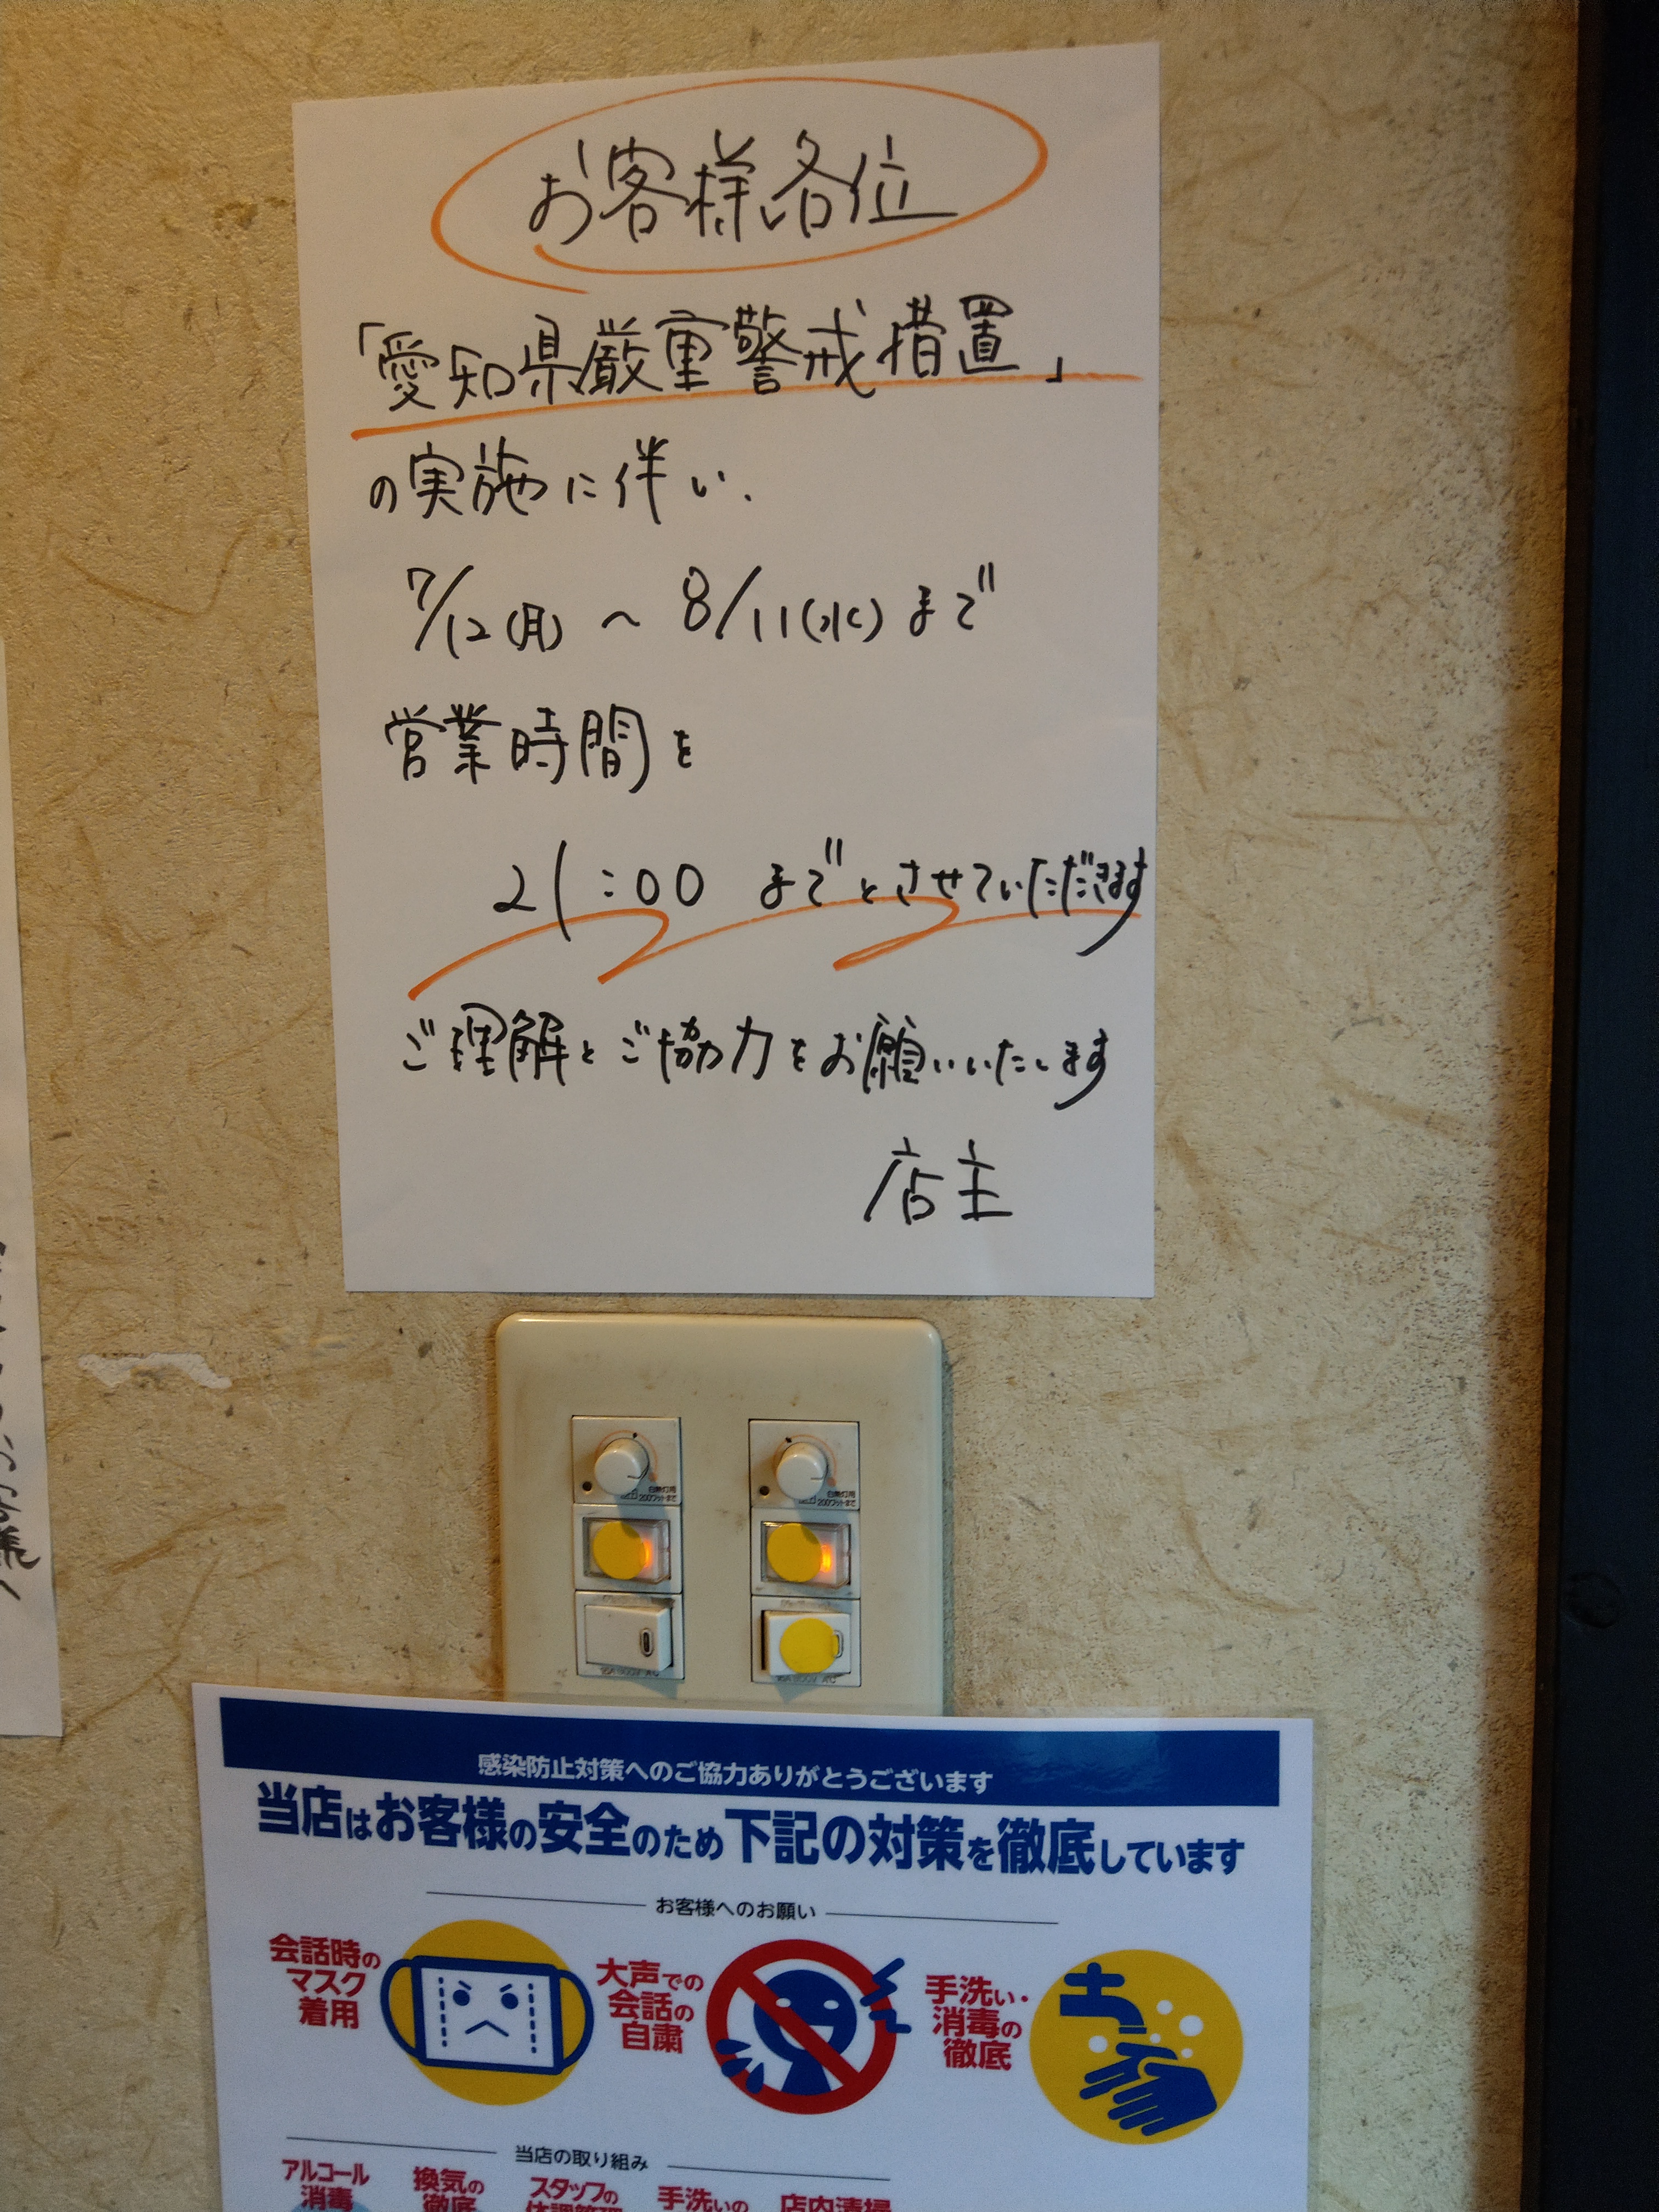 お客様各位
「愛知県厳重警戒措置」
の実施に伴い、
7/12(月)～8/11(水)まで
営業時間を
21:00 までとさせていただきます
ご理解とご協力をお願いいたします
店主
白熱灯用
200ワットまで
白熱灯用
200ワットまで
感染防止対策へのご協力ありがとうございます
当店はお客様の安全のため下記の対策を徹底しています
お客様へのお願い
会話時の
マスク
着用
大声での
会話の
自粛
手洗い・
消毒の
徹底
当店の取り組み
アルコール
消毒
換気の
徹底
スタッフの
体調管理
手洗いの
店内清掃